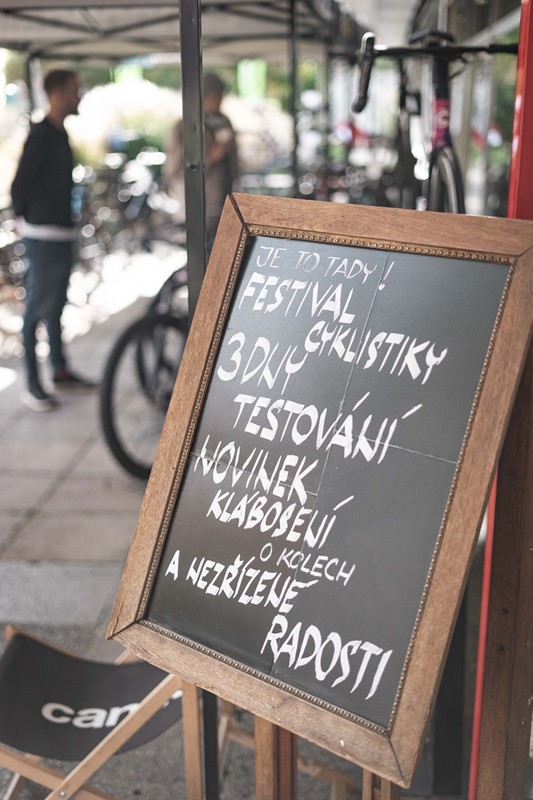 JE TO TADY!
FESTIVAL
CYKLISTIKY
3 DNY
TESTOVÁNÍ
NOVINEK
KLÁBOSENÍ
O KOLECH
A NEZŘÍZENÉ
RADOSTI